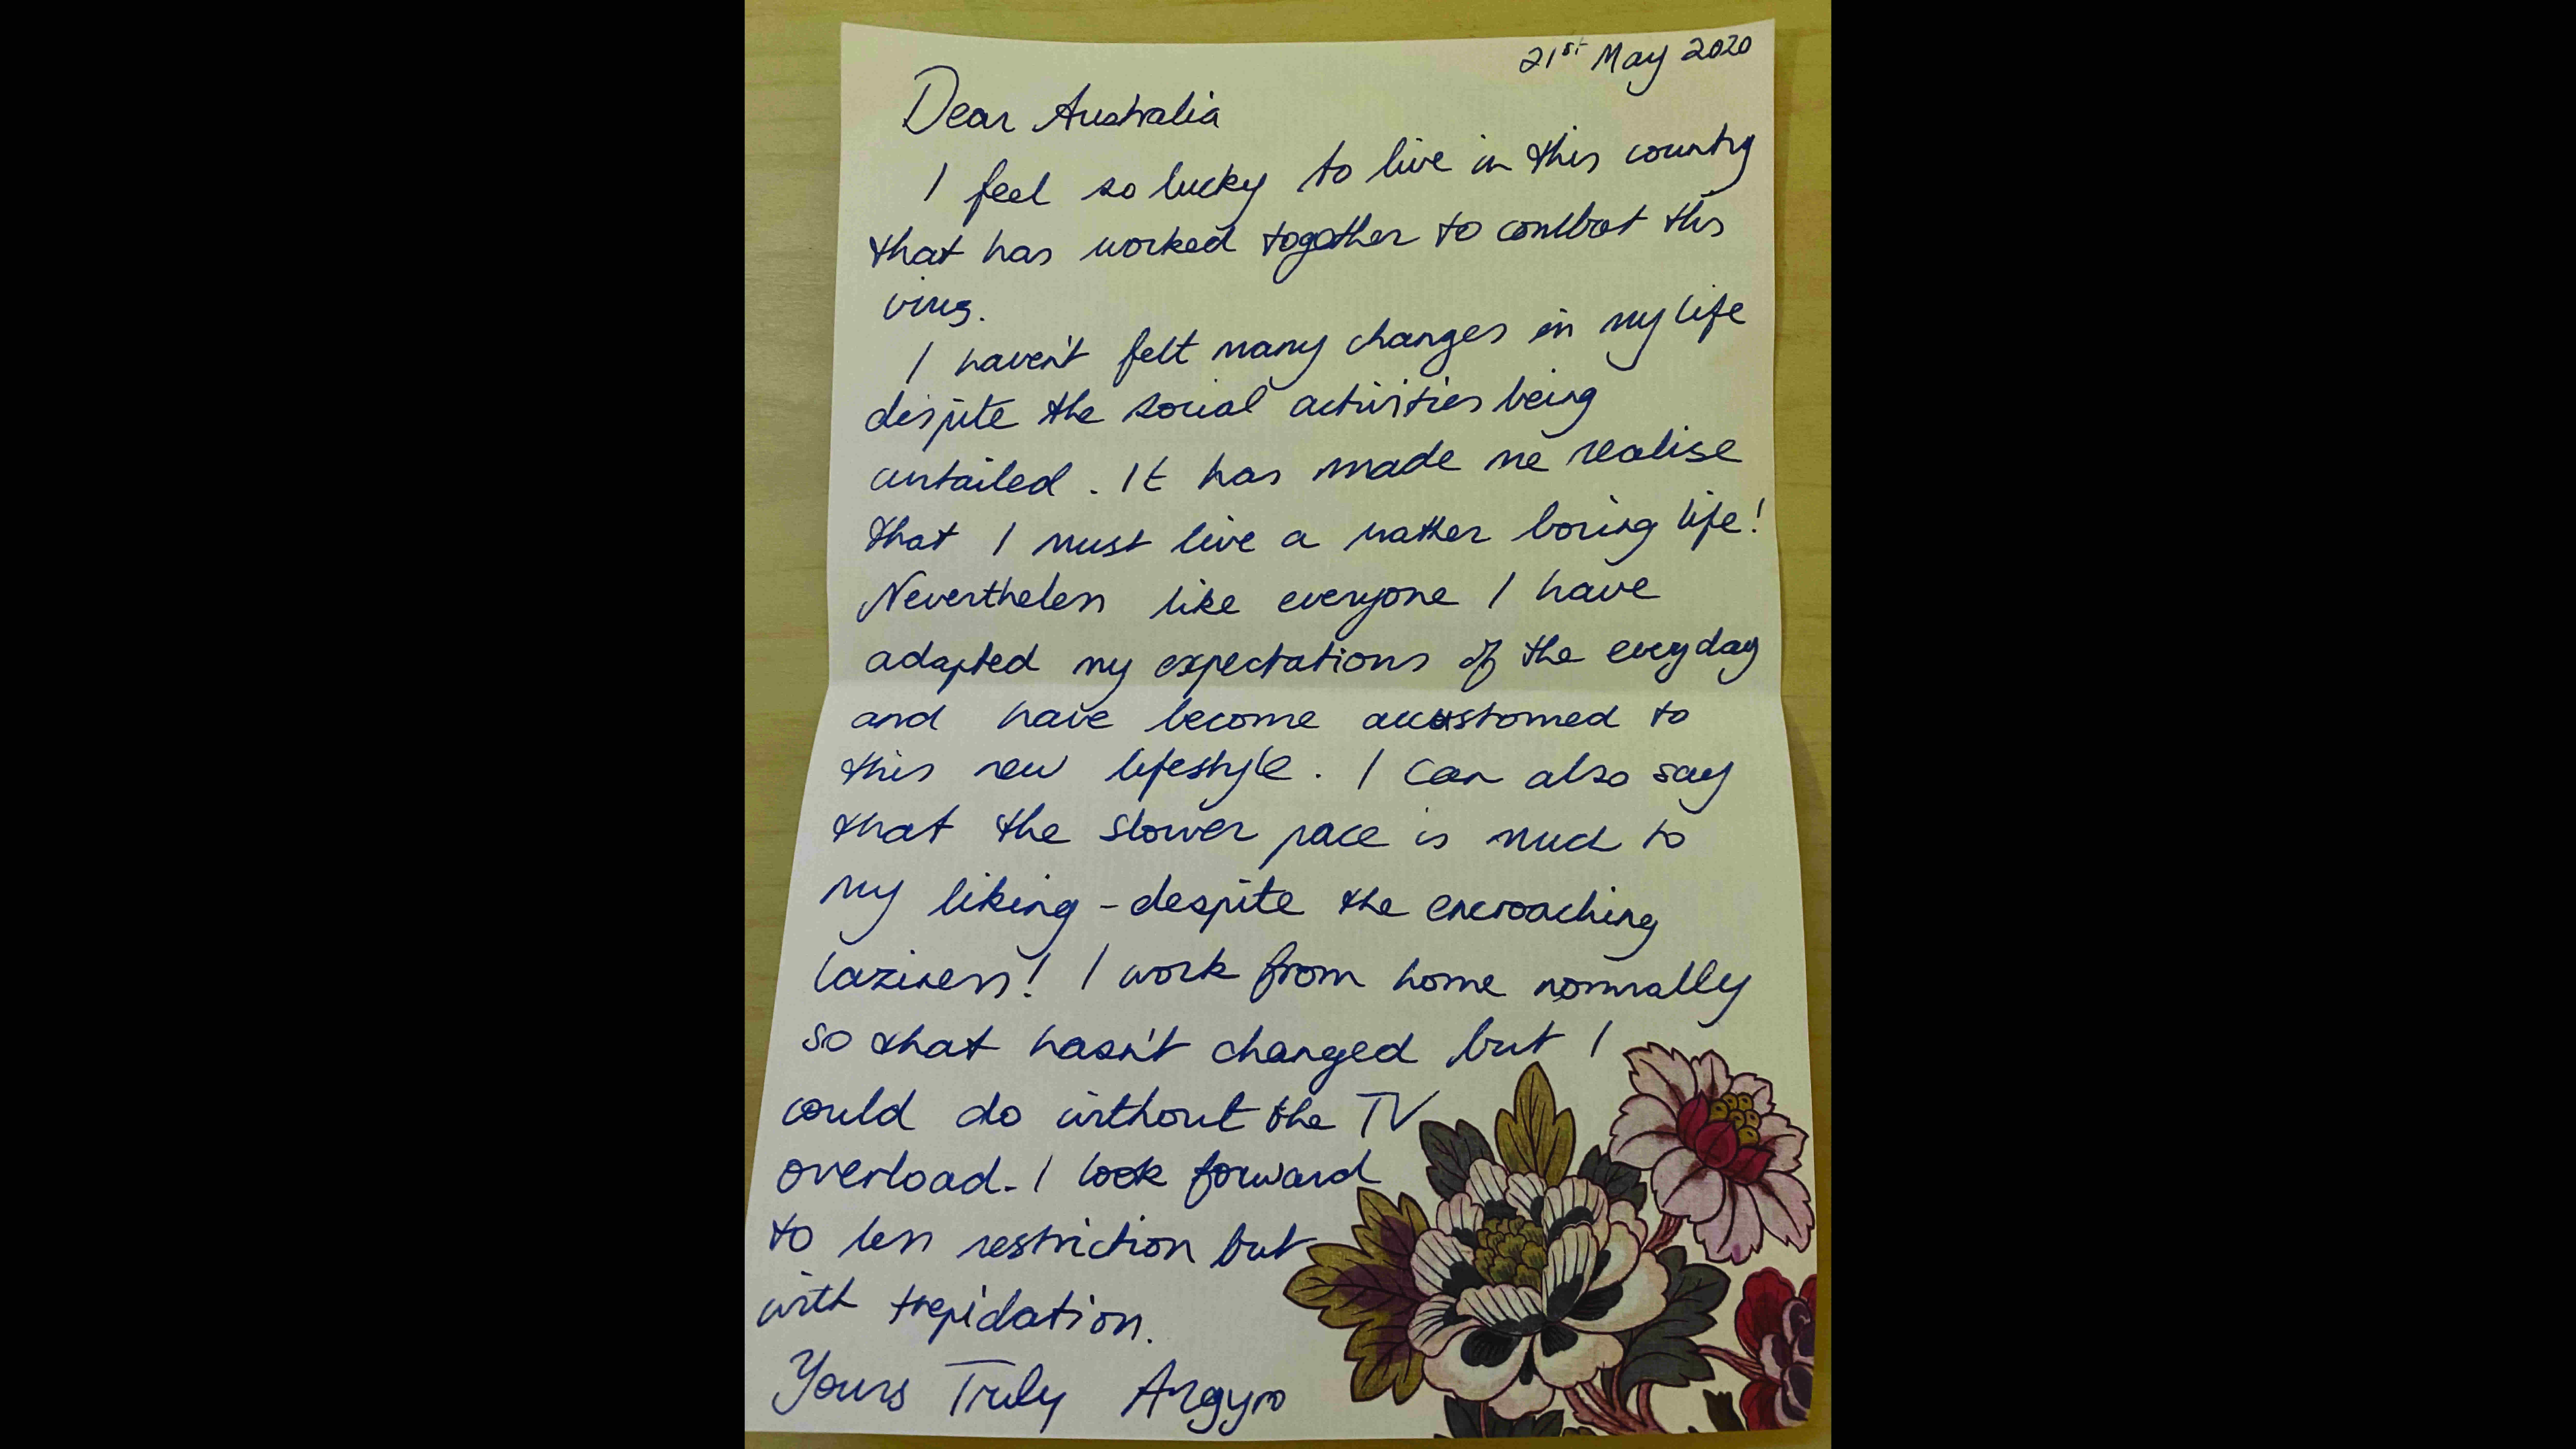 21st May 2020
Dear Australia
I feel so lucky to live in this country
that has worked together to combat this
virus.
I haven't felt many changes in my life
despite the social activities being
curtailed. It has made me realise
that I must live a rather boring life!
Nevertheless like everyone I have
adapted my expectations of the everyday
and have become accustomed to
this new lifestyle. I can also say
that the slower pace is much to
my liking - despite the encroaching
laziness! I work from home normally
so that hasn't changed but I
could do without the TV
overload. I look forward
to less restriction but
with trepidation.
Yours Truly Argyro